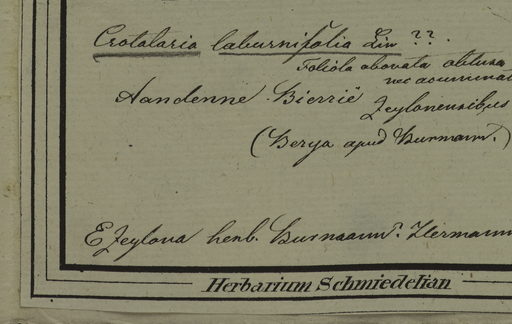 Crotalaria laburnifolia Lin ??.
Foliola obovata obtusa
nec acuminat
Aandenne Bierrië Zeylonensibus
(Berya apud Burmann.)
E Zeylona herb. Burmanni. Hermann
Herbarium Schmiedelian